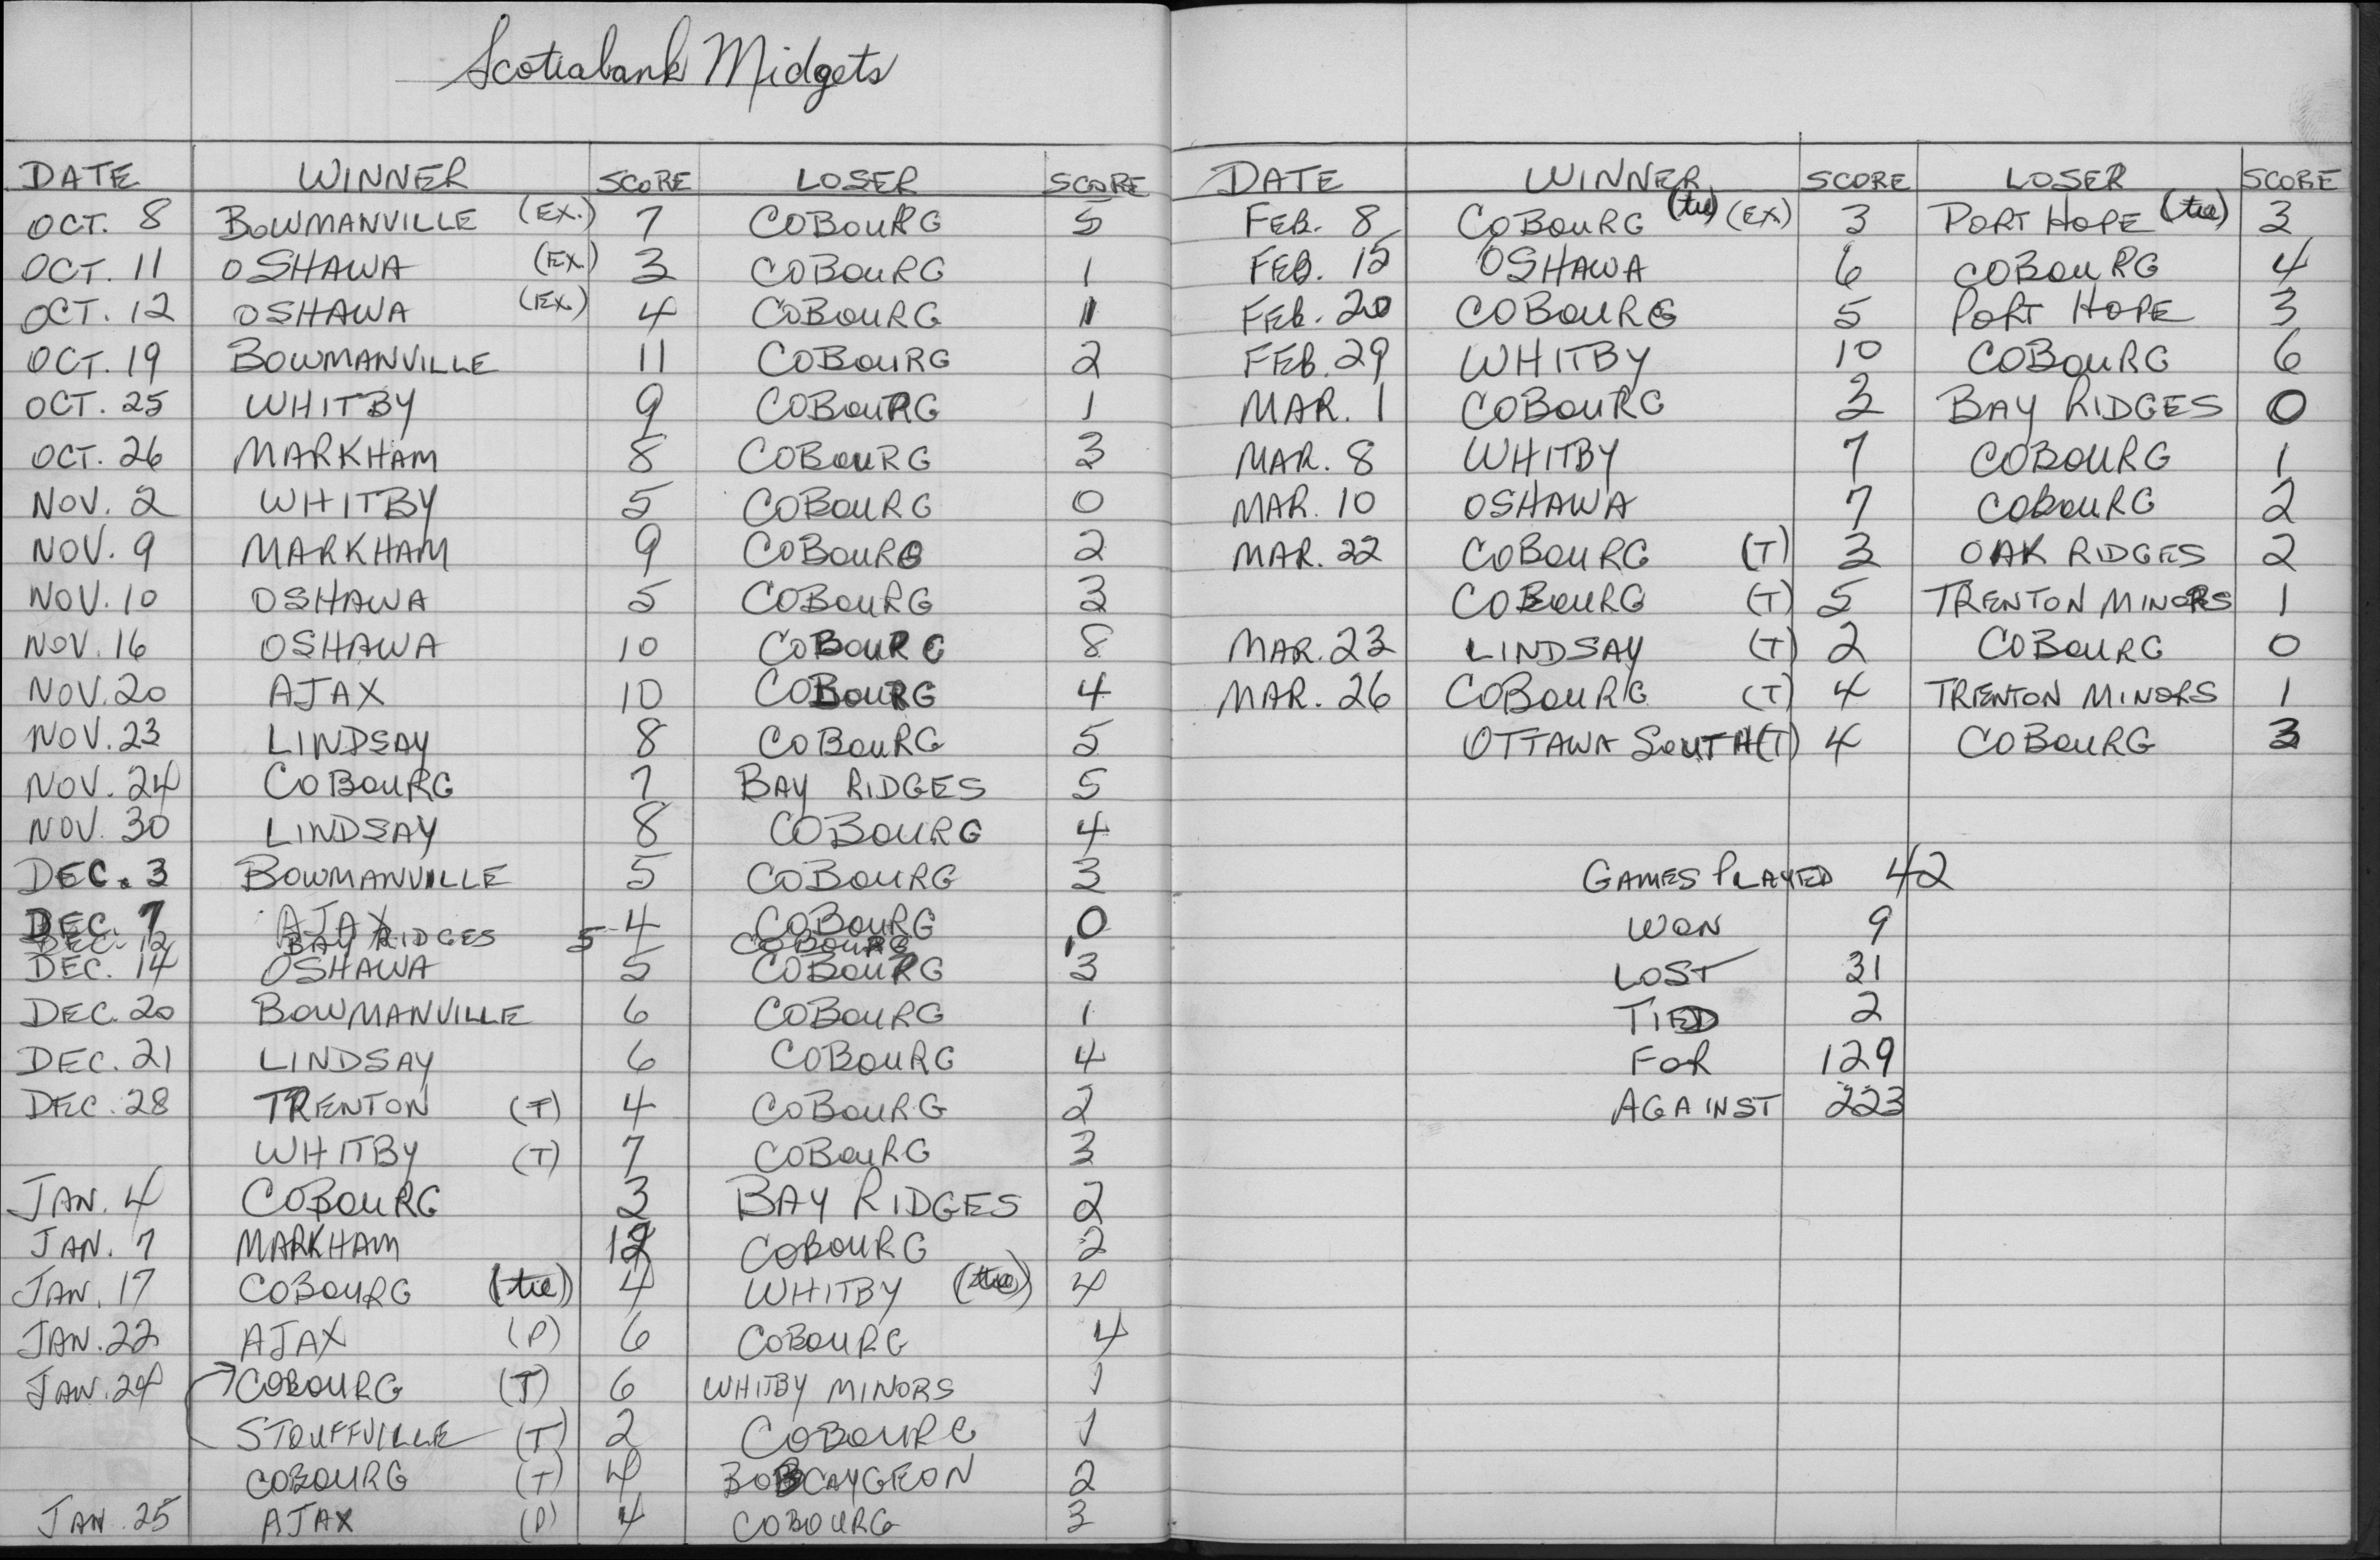 Scotiabank Midgets
DATE WINNER SCORE LOSER SCORE
OCT. 8 BOWMANVILLE (EX.) 7 COBOURG 5
OCT. 11 OSHAWA (EX) 3 COBOURG 1
OCT. 12 OSHAWA (EX.) 4 COBOURG 1
OCT. 19 BOWMANVILLE 11 COBOURG 2
OCT. 25 WHITBY 9 COBOURG 1
OCT. 26 MARKHAM 8 COBOURG 3
NOV. 2 WHITBY 5 COBOURG 0
NOV. 9 MARKHAM 9 COBOURG 2
NOV. 10 OSHAWA 5 COBOURG 3
NOV. 16 OSHAWA 10 COBOURG 8
NOV. 20 AJAX 10 COBOURG 4
NOV. 23 LINDSAY 8 COBOURG 5
NOV. 24 COBOURG 7 BAY RIDGES 5
NOV. 30 LINDSAY 8 COBOURG 4
DEC. 3 BOWMANVILLE 5 COBOURG 3
DEC. 7 AJAX 4 COBOURG 0
DEC. 12 BAY RIDGES 5 COBOURG 1
DEC. 14 OSHAWA 5 COBOURG 3
DEC. 20 BOWMANVILLE 6 COBOURG 1
DEC. 21 LINDSAY 6 COBOURG 4
DEC. 28 TRENTON (T) 4 COBOURG 2
WHITBY (T) 7 COBOURG 3
JAN. 4 COBOURG 3 BAY RIDGES 2
JAN. 7 MARKHAM 12 COBOURG 2
JAN. 17 COBOURG (tie) 4 WHITBY (tie) 4
JAN. 22 AJAX (P) 6 COBOURG 4
JAN. 24 COBOURG (T) 6 WHITBY MINORS 1
STOUFFVILLE (T) 2 COBOURG 1
COBOURG (T) 4 BOBCAYGEON 2
JAN. 25 AJAX (P) 4 COBOURG 3
DATE WINNER SCORE LOSER SCORE
FEB. 8 COBOURG (tie) (EX) 3 PORT HOPE (tie) 3
FEB. 15 OSHAWA 6 COBOURG 4
FEB. 20 COBOURG 5 PORT HOPE 3
FEB. 29 WHITBY 10 COBOURG 6
MAR. 1 COBOURG 3 BAY RIDGES 0
MAR. 8 WHITBY 7 COBOURG 1
MAR. 10 OSHAWA 7 COBOURG 2
MAR. 22 COBOURG (T) 3 OAK RIDGES 2
COBOURG (T) 5 TRENTON MINORS 1
MAR. 23 LINDSAY (T) 2 COBOURG 0
MAR. 26 COBOURG (T) 4 TRENTON MINORS 1
OTTAWA SOUTH (T) 4 COBOURG 3
GAMES PLAYED 42
WON 9
LOST 31
TIED 2
FOR 129
AGAINST 223